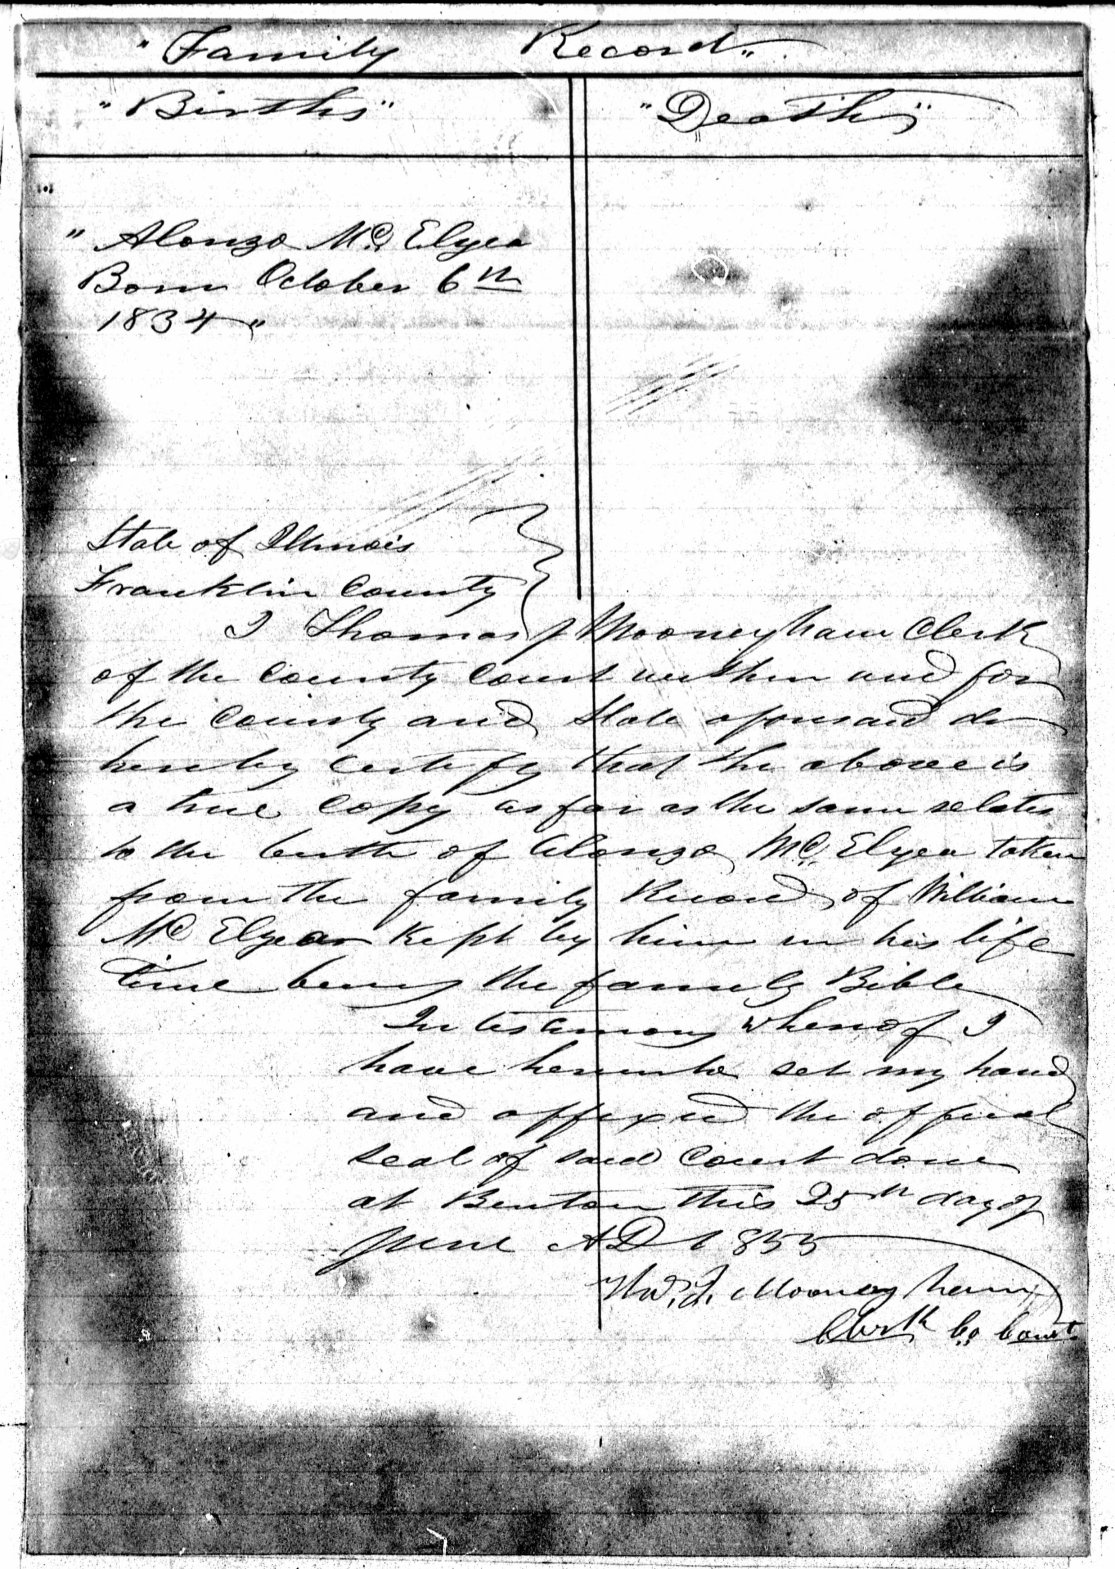 "Family Record"
"Births" "Deaths"
" Alonzo Mc Elyea
Born October 6th
1834"
State of Illinois
Franklin County
I Thomas J Mooneyham Clerk
of the County Court within and for
the County and State aforesaid do
hereby certify that the above is
a true Copy as far as the same relates
to the birth of Alonzo Mc Elyea taken
from the family Record of William
Mc Elyea Kept by him in his life
time being the family Bible
In testimony whereof I
have hereunto set my hand
and affixed the official
seal of said Court done
at Benton this 25th day of
June AD 1855
Tho. J. Mooneyham
Clerk Co Court